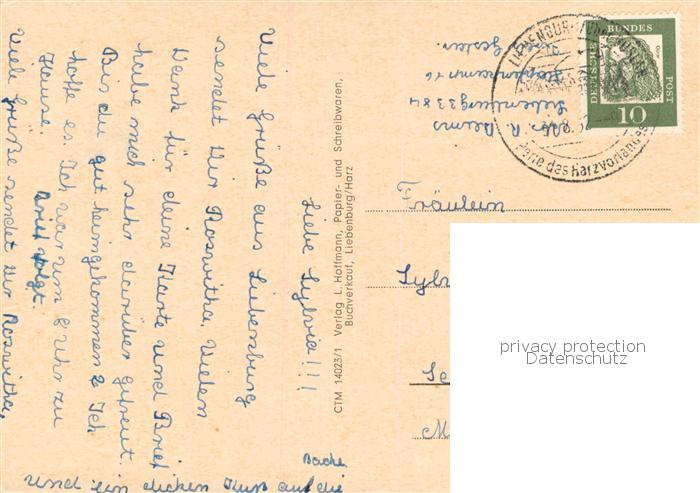 Liebe Sylvia!!!
Viele Grüße aus Liebenburg
sendet Dir Roswitha. Vielen
Dank für deine Karte und Brief
habe mich sehr darüber gefreut.
Bis du gut heimgekommen? Ich
hoffe es. Ich war um 8 Uhr zu
Hause. Brief folgt.
Viele Grüße sendet Dir Roswitha,
und ein dicken Kuß auf die
Backe
CTM 14023/1 Verlag L. Hoffmann, Papier- und Schreibwaren,
Buchverkauf, Liebenburg/Harz
Abs. R. Beims
Liebenburg 3384
DEUTSCHE
BUNDES
POST
10
Perle des Harzvorlandes
Fräulein
privacy protection
Datenschutz